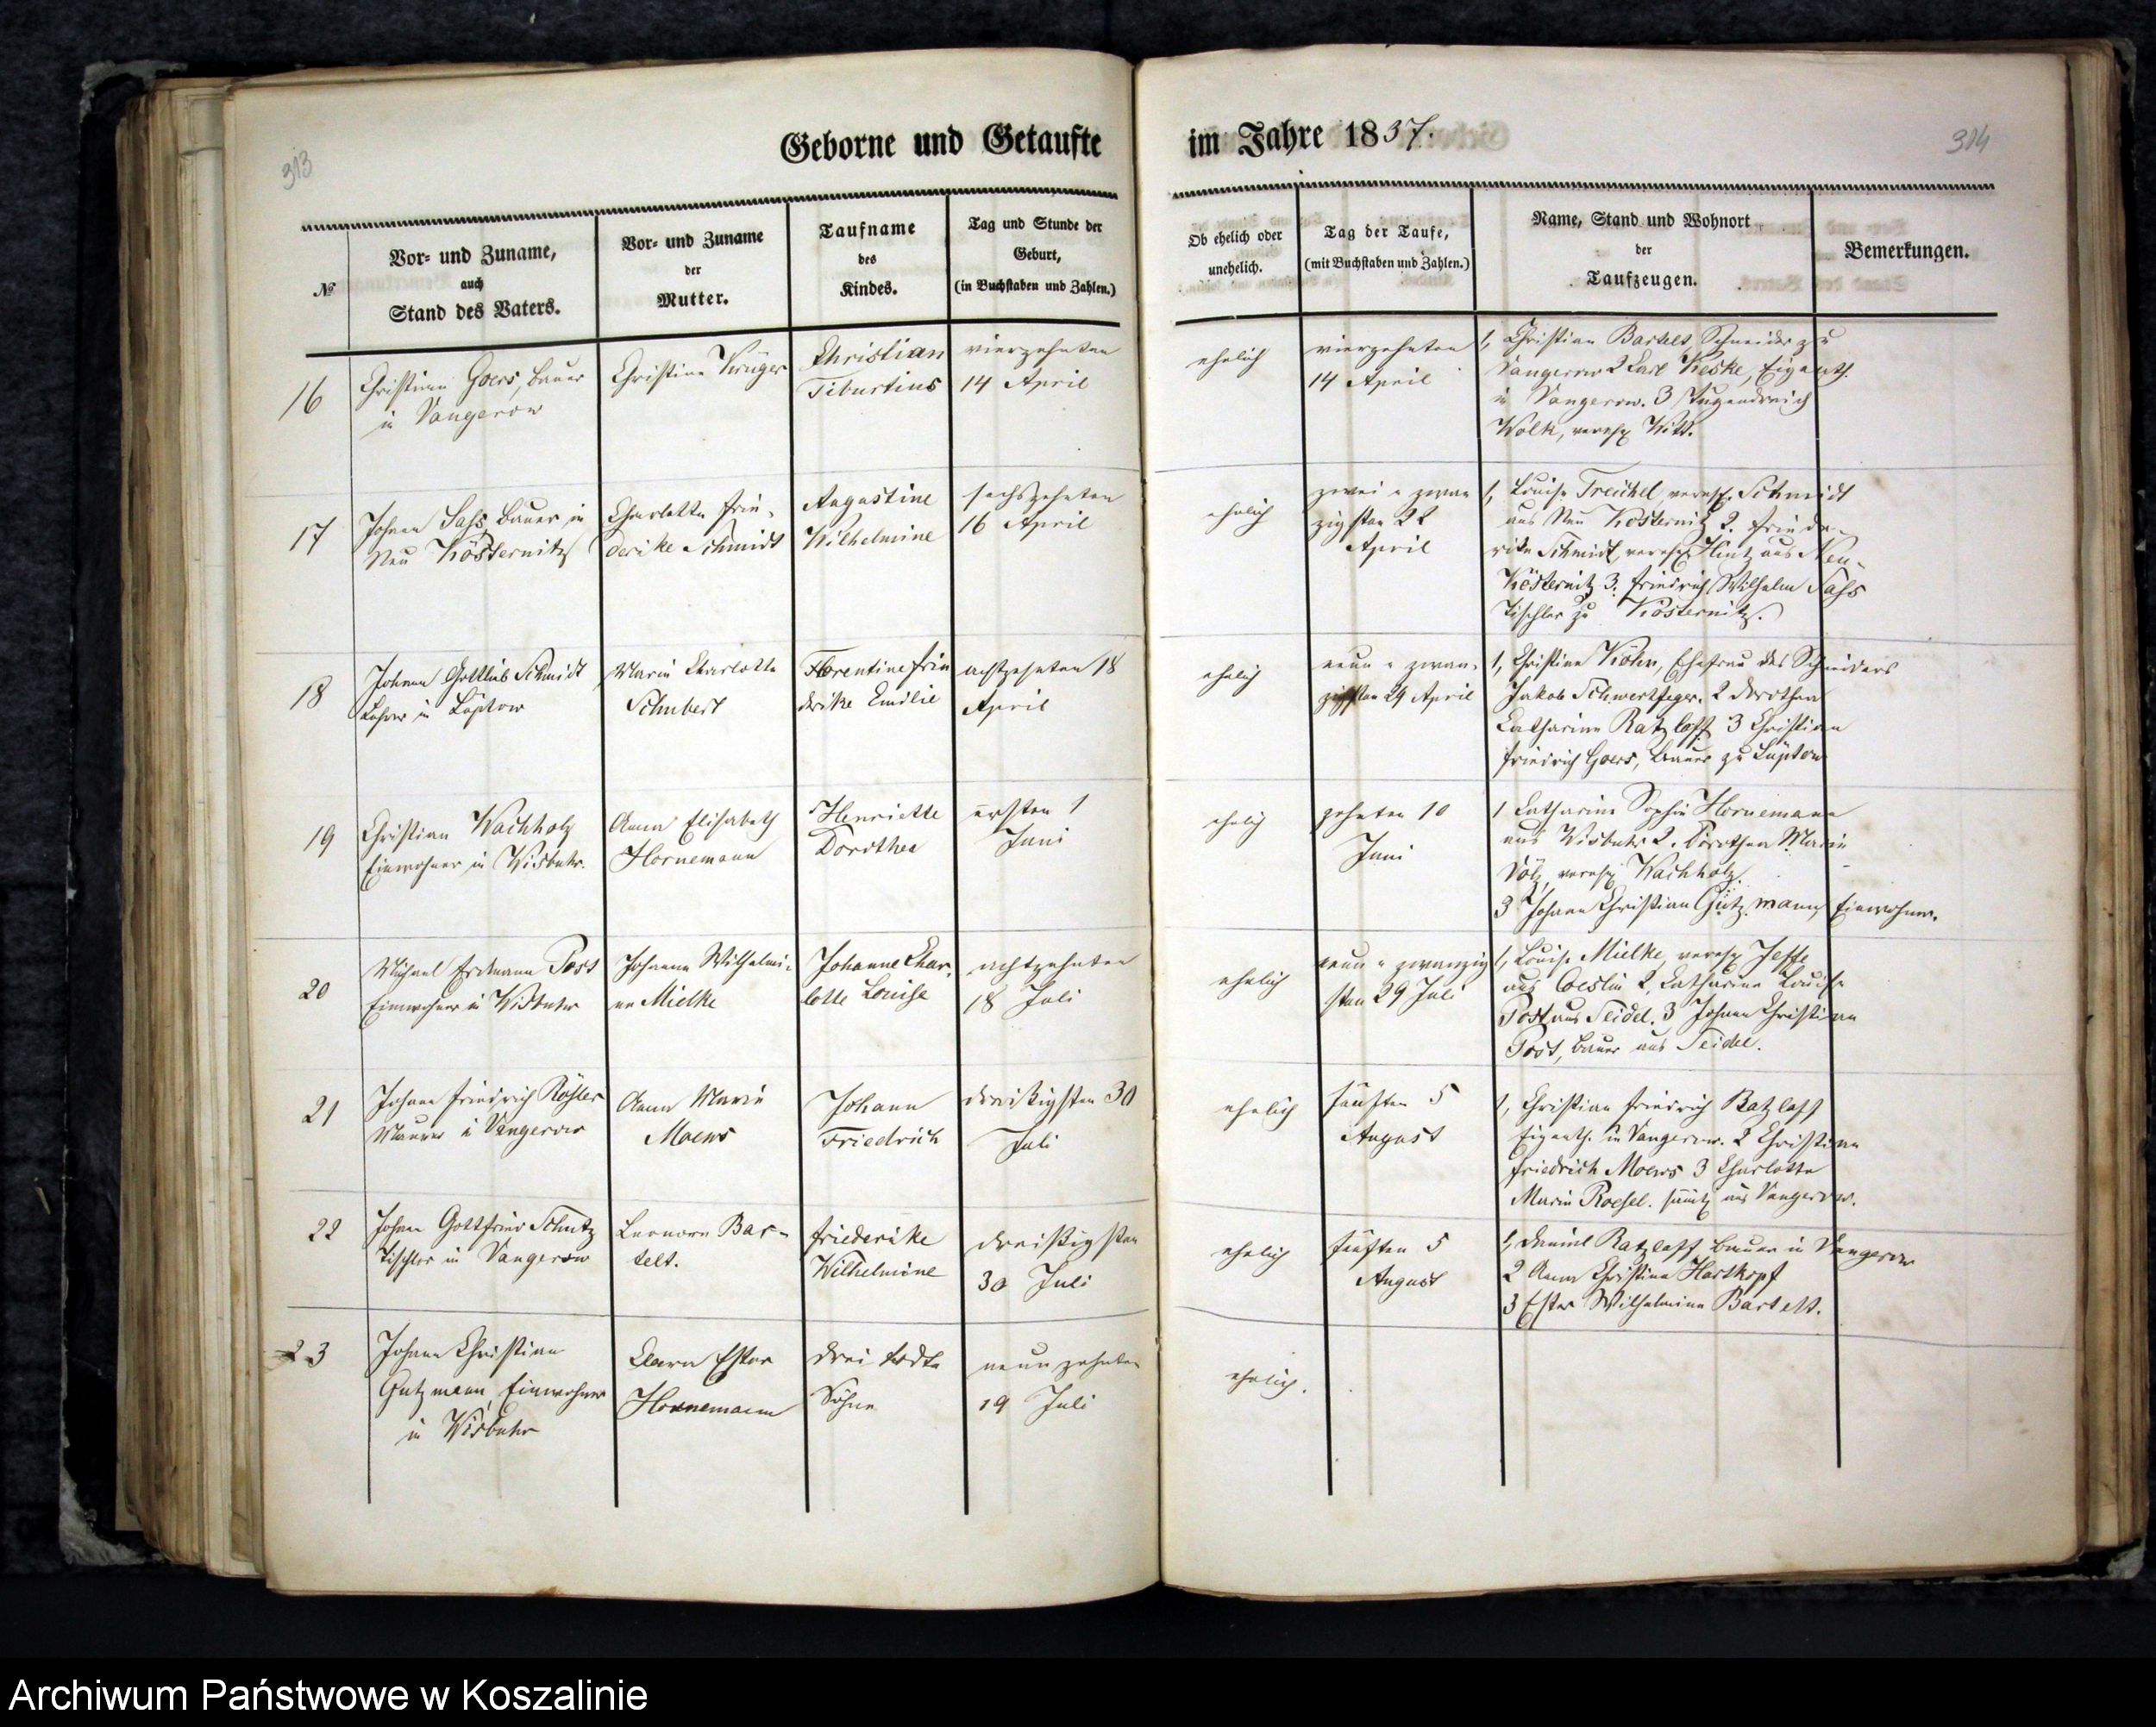 313
Geborne und Getaufte
№
Vor- und Zuname,
auch
Stand des Vaters.
Vor- und Zuname
der
Mutter.
Taufname
des
Kindes.
Tag und Stunde der
Geburt,
(in Buchstaben und Zahlen.)
16
Christian Goers, Bauer
in Vangerow
Christine Krüger
Christian
Tiburtius
vierzehnten
14 April
17
Johann Sass Bauer in
Neu Kösternitz
Charlotte Frie-
derike Schmidt
Augustine
Wilhelmine
sechszehnten
16 April
18
Johann Gottlieb Schmidt
in Lüptow
Marie Charlotte
Schubert
Florentine Frie
derike Emilie
achtzehnten 18
April
19
Christian Wachholz
Einwohner in Wisbuhr.
Anna Elisabeth
Hornemann
Henriette
Dorothea
ersten 1
Juni
20
Michael Erdmann Post
Einwohner in Wisbuhr
Johanna Wilhelmi-
ne Mielke
Johanne Char-
lotte Louise
achtzehnten
18 Juli
21
Johann Friedrich
Maurer in Vangerow
Anna Marie
Moews
Johann
Friedrich
dreißigsten 30
Juli
22
Johann Gottfried
Tischler in Vangerow
Leonore Bar-
telt.
Friederike
Wilhelmine
dreißigsten
30 Juli
23
Johann Christian
Gutzmann, Einwohner
in Wisbuhr
Ester
Hornemann
drei todte
Söhne
neunzehnten
19 Juli
im Jahre 1837.
314
Ob ehelich oder
unehelich.
Tag der Taufe,
(mit Buchstaben und Zahlen.)
Name, Stand und Wohnort
der
Taufzeugen.
Bemerkungen.
ehelich
vierzehnten
14 April
1, Christian Schneider zu
Vangerow 2 Carl Keske, Eigenth.
in Vangerow. 3 Tugendreich
Wolk, vereh. Witt.
ehelich
zwei u zwan
zigsten 22
April
1, Louise Treichel, vereh. Schmidt
aus Neu Kösternitz 2. Friede-
rike Schmidt, vereh. Hintz aus Neu-
Kösternitz 3. Friedrich Wilhelm Sass
Tischler zu Kösternitz.
ehelich
neun u zwan-
zigsten 29 April
1, Christine Köhn, Ehefrau des Schneiders
Jakob Schwertfeger. 2 Dorothea
Catharine Ratzlaff 3 Christian
Friedrich Goers, Bauer zu Lüptow
ehelich
zehnten 10
Juni
1 Catharine Sophie Hornemann
aus Wisbuhr 2. Dorothea Marie
Völz, vereh. Wachholz.
3 Johann Christian Gützmann, Einwohner.
ehelich
neun u zwanzig
sten 29 Juli
1, Louise Mielke, vereh.
aus Coeslin 2, Catharine Louise
Post aus Seidel. 3 Johann Christian
Post, Bauer aus Seidel.
ehelich
fünften 5
August
1, Christian Friedrich Ratzlaff
Eigenth. in Vangerow. 2 Christian
Friedrich Moews 3 Charlotte
Marie Roesel. aus Vangerow.
ehelich
fünften 5
August
1, Daniel Ratzlaff, Bauer in Vangerow
2 Anna Christine Hartkopf
3 Ester Wilhelmine Bartelt.
ehelich.
Archiwum Państwowe w Koszalinie